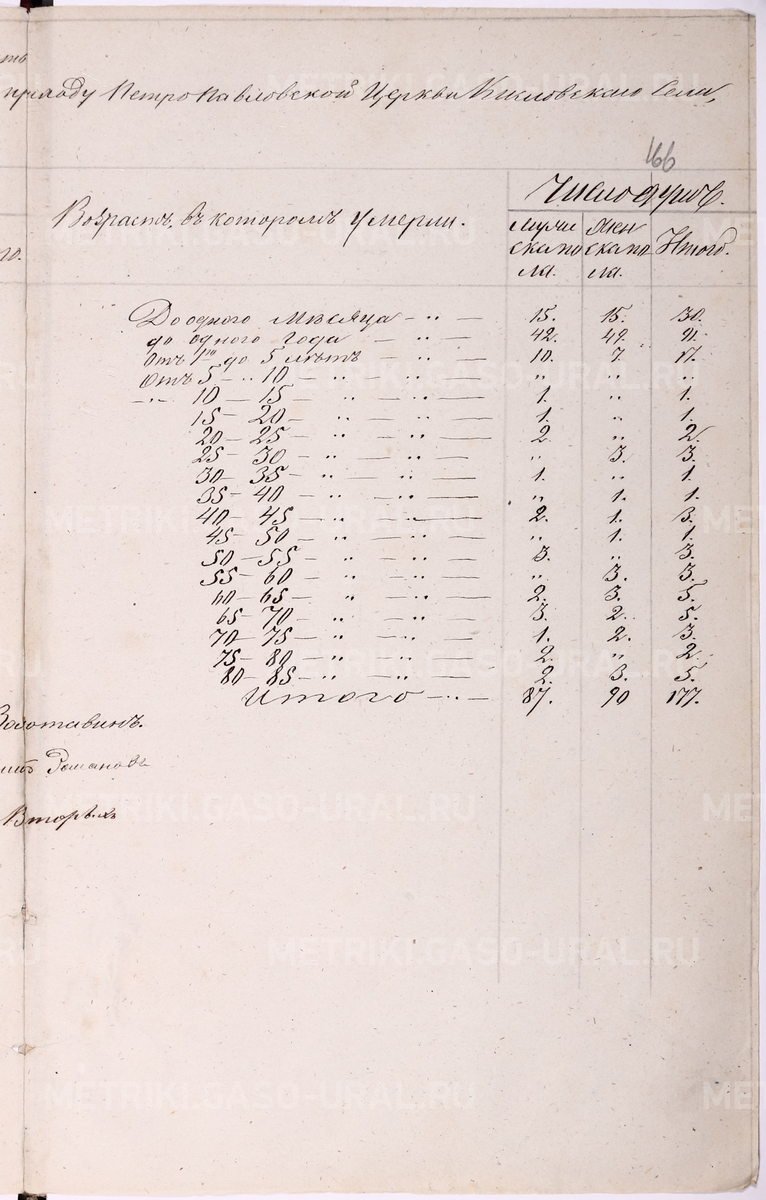 приходу Петропавловской Церкви Кисловскаго Села,
166
Число душъ.
Возрастъ, въ которомъ умерли.
Мужи Жен Итого.
скапо скапо
ла. ла.
го.
До одного Мѣсяца – „ – 15. 15. 30.
до одного Года – „ – 42. 49. 91.
Отъ 1го до 5 лѣтъ – „ – 10. 7. 17.
Отъ 5 – „ 10 – „ – „ – „ „ „
– „ 10 – 15 – „ – „ – 1. „ 1.
15 – 20 – „ – „ – 1. „ 1.
20 – 25 – „ – „ – 2. „ 2.
25 – 30 – „ – „ – „ 3. 3.
30 – 35 – „ – „ – 1. „ 1.
35 – 40 – „ – „ – „ 1. 1.
40 – 45 – „ – „ – 2. 1. 3.
45 – 50 – „ – „ – „ 1. 1.
50 – 55 – „ – „ – 3. „ 3.
55 – 60 – „ – „ – „ 3. 3.
60 – 65 – „ – „ – 2. 3. 5.
65 – 70 – „ – „ – 3. 2. 5.
70 – 75 – „ – „ – 1. 2. 3.
75 – 80 – „ – „ – 2. „ 2.
80 – 85 – „ – „ – 2. 3. 5.
Итого – „ – 87. 90 177.
Золотавинъ.
Романовъ
Вторыхъ
METRIKI.GASO-URAL.RU